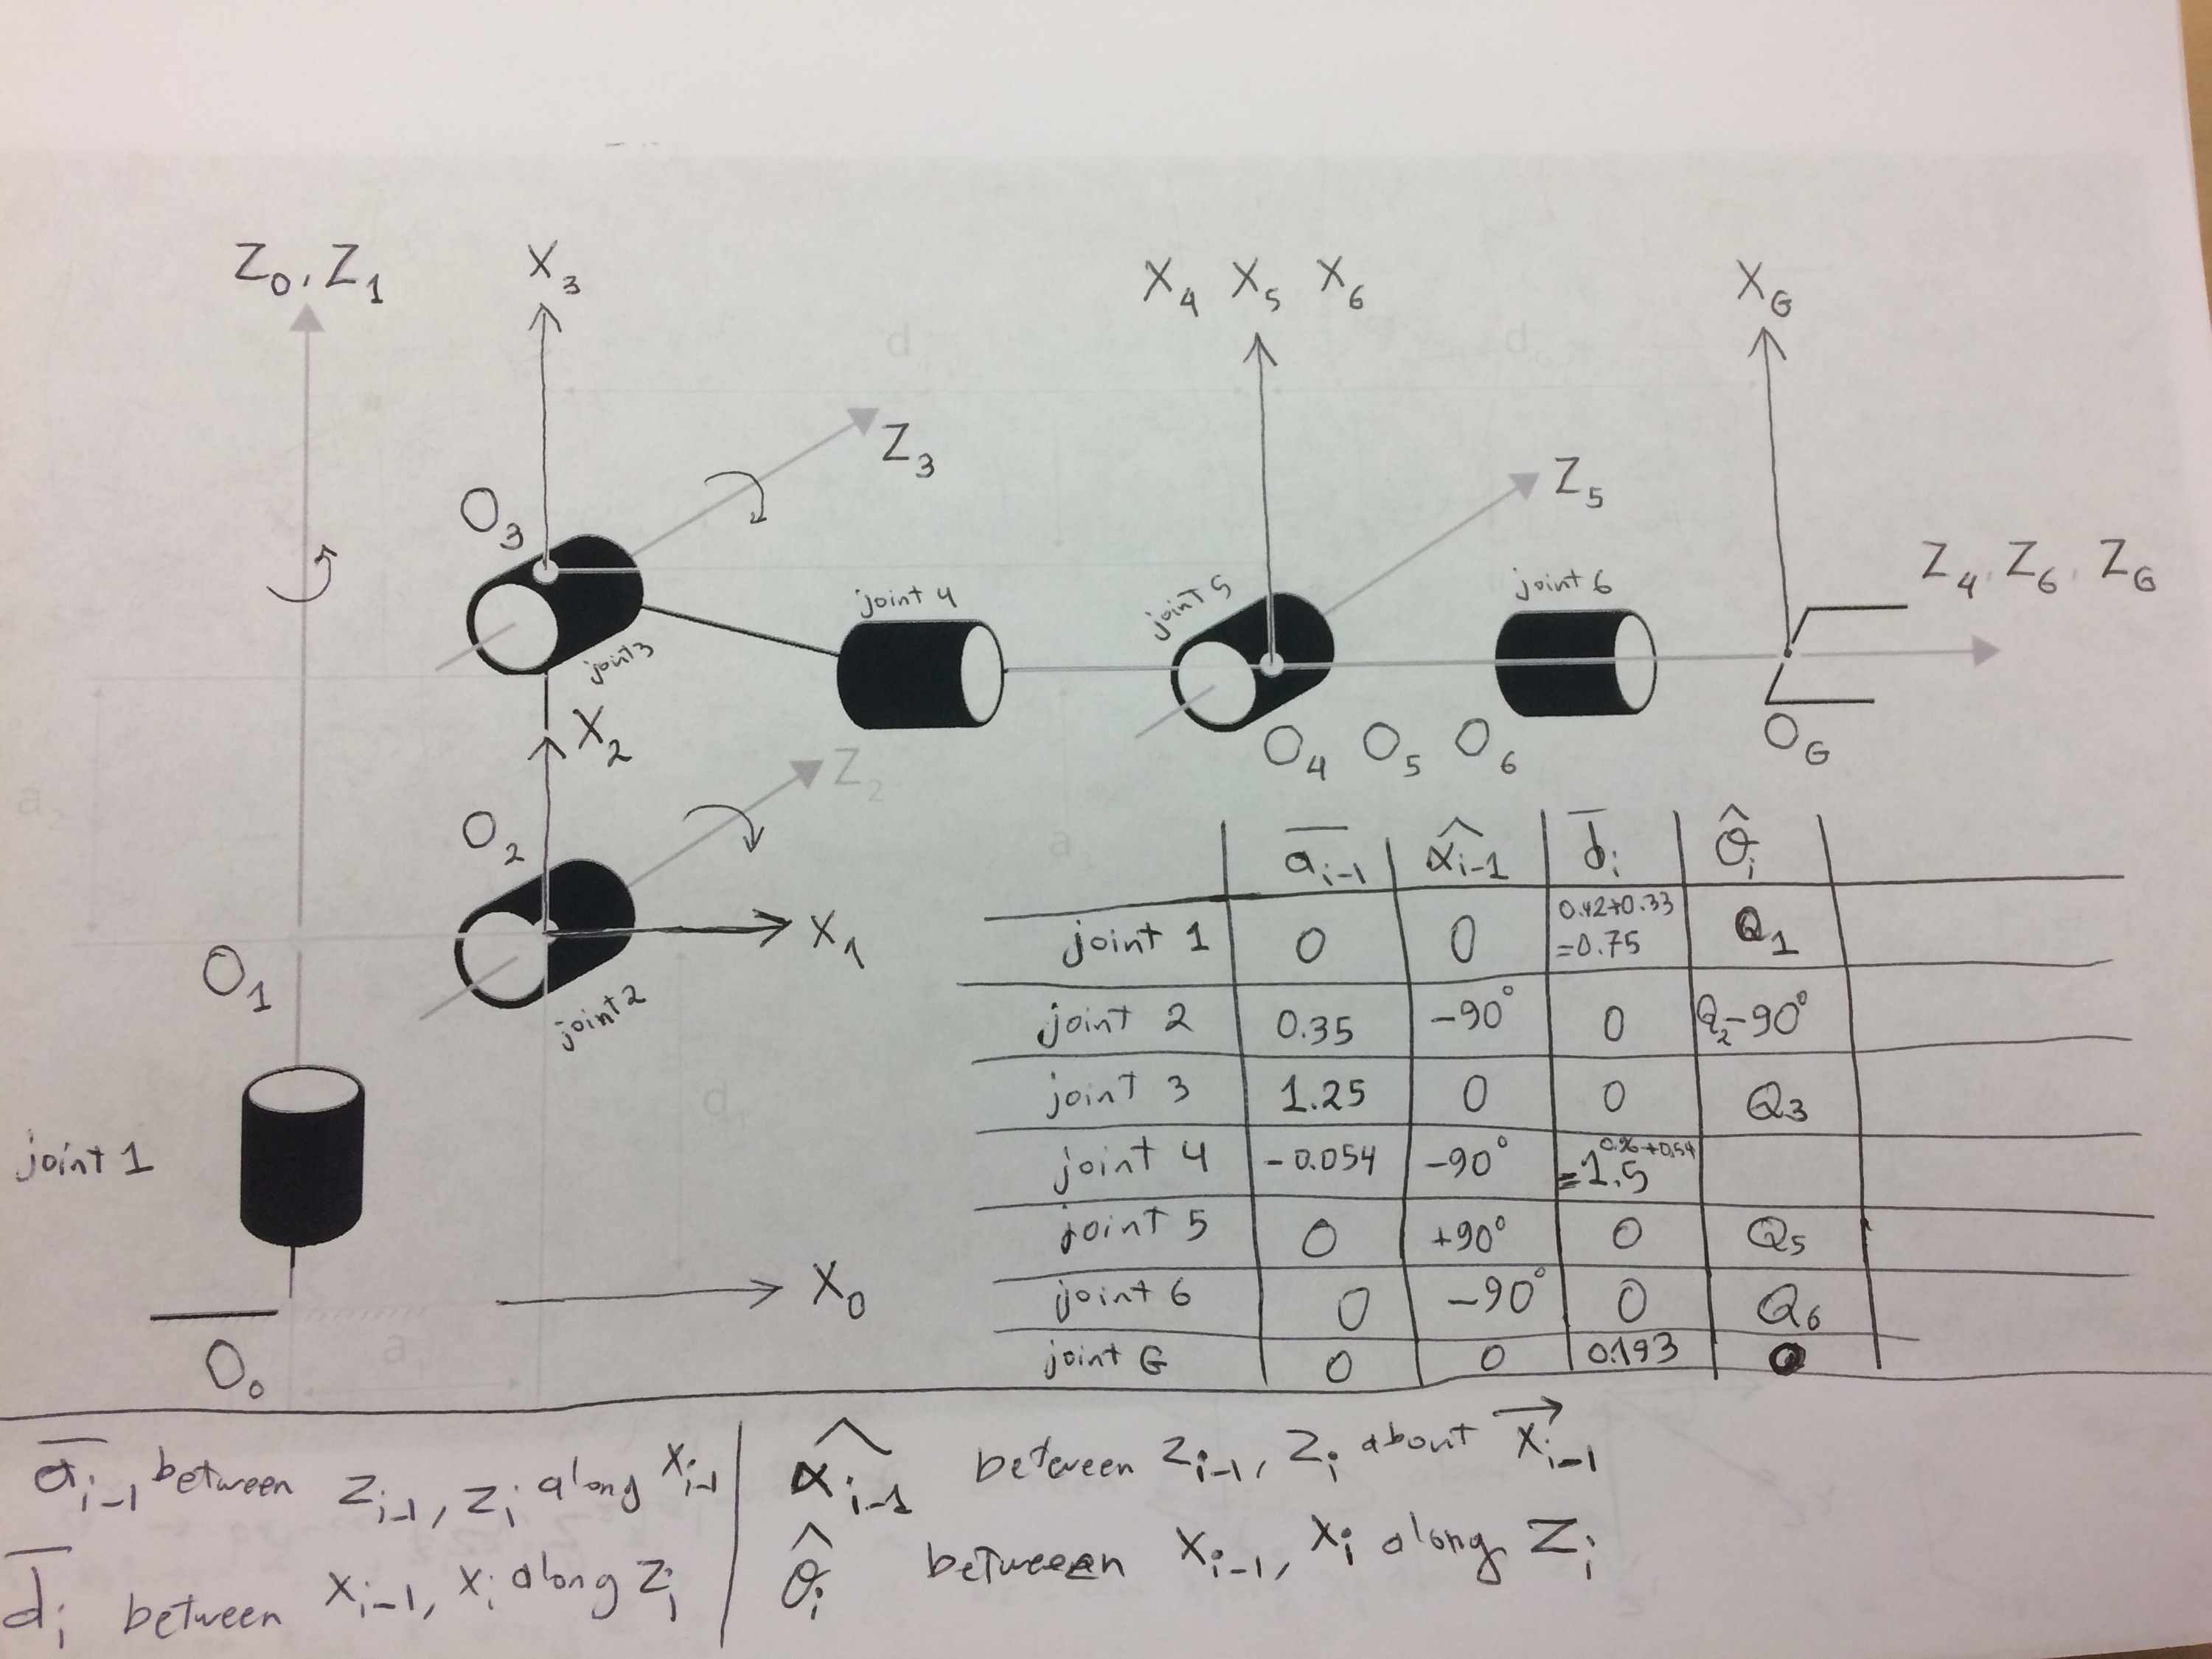 Z0, Z1
X3
X4 X5 X6
XG
d
Z3
O3
Z5
Z4, Z6, ZG
joint 4
joint 5
joint 6
joint3
X2
O4 O5 O6
OG
Z2
O2
X1
O1
joint2
d1
joint 1
X0
O0
a1
a2
ai-1 αi-1 di θi
joint 1 0 0 0.42+0.33 =0.75 Q1
joint 2 0.35 -90° 0 Q2-90°
joint 3 1.25 0 0 Q3
joint 4 -0.054 -90° 0.96+0.54 =1.5
joint 5 0 +90° 0 Q5
joint 6 0 -90° 0 Q6
joint G 0 0 0.193 0
ai-1 between Zi-1, Zi along Xi-1
αi-1 between Zi-1, Zi about Xi-1
di between Xi-1, Xi along Zi
θi between Xi-1, Xi along Zi